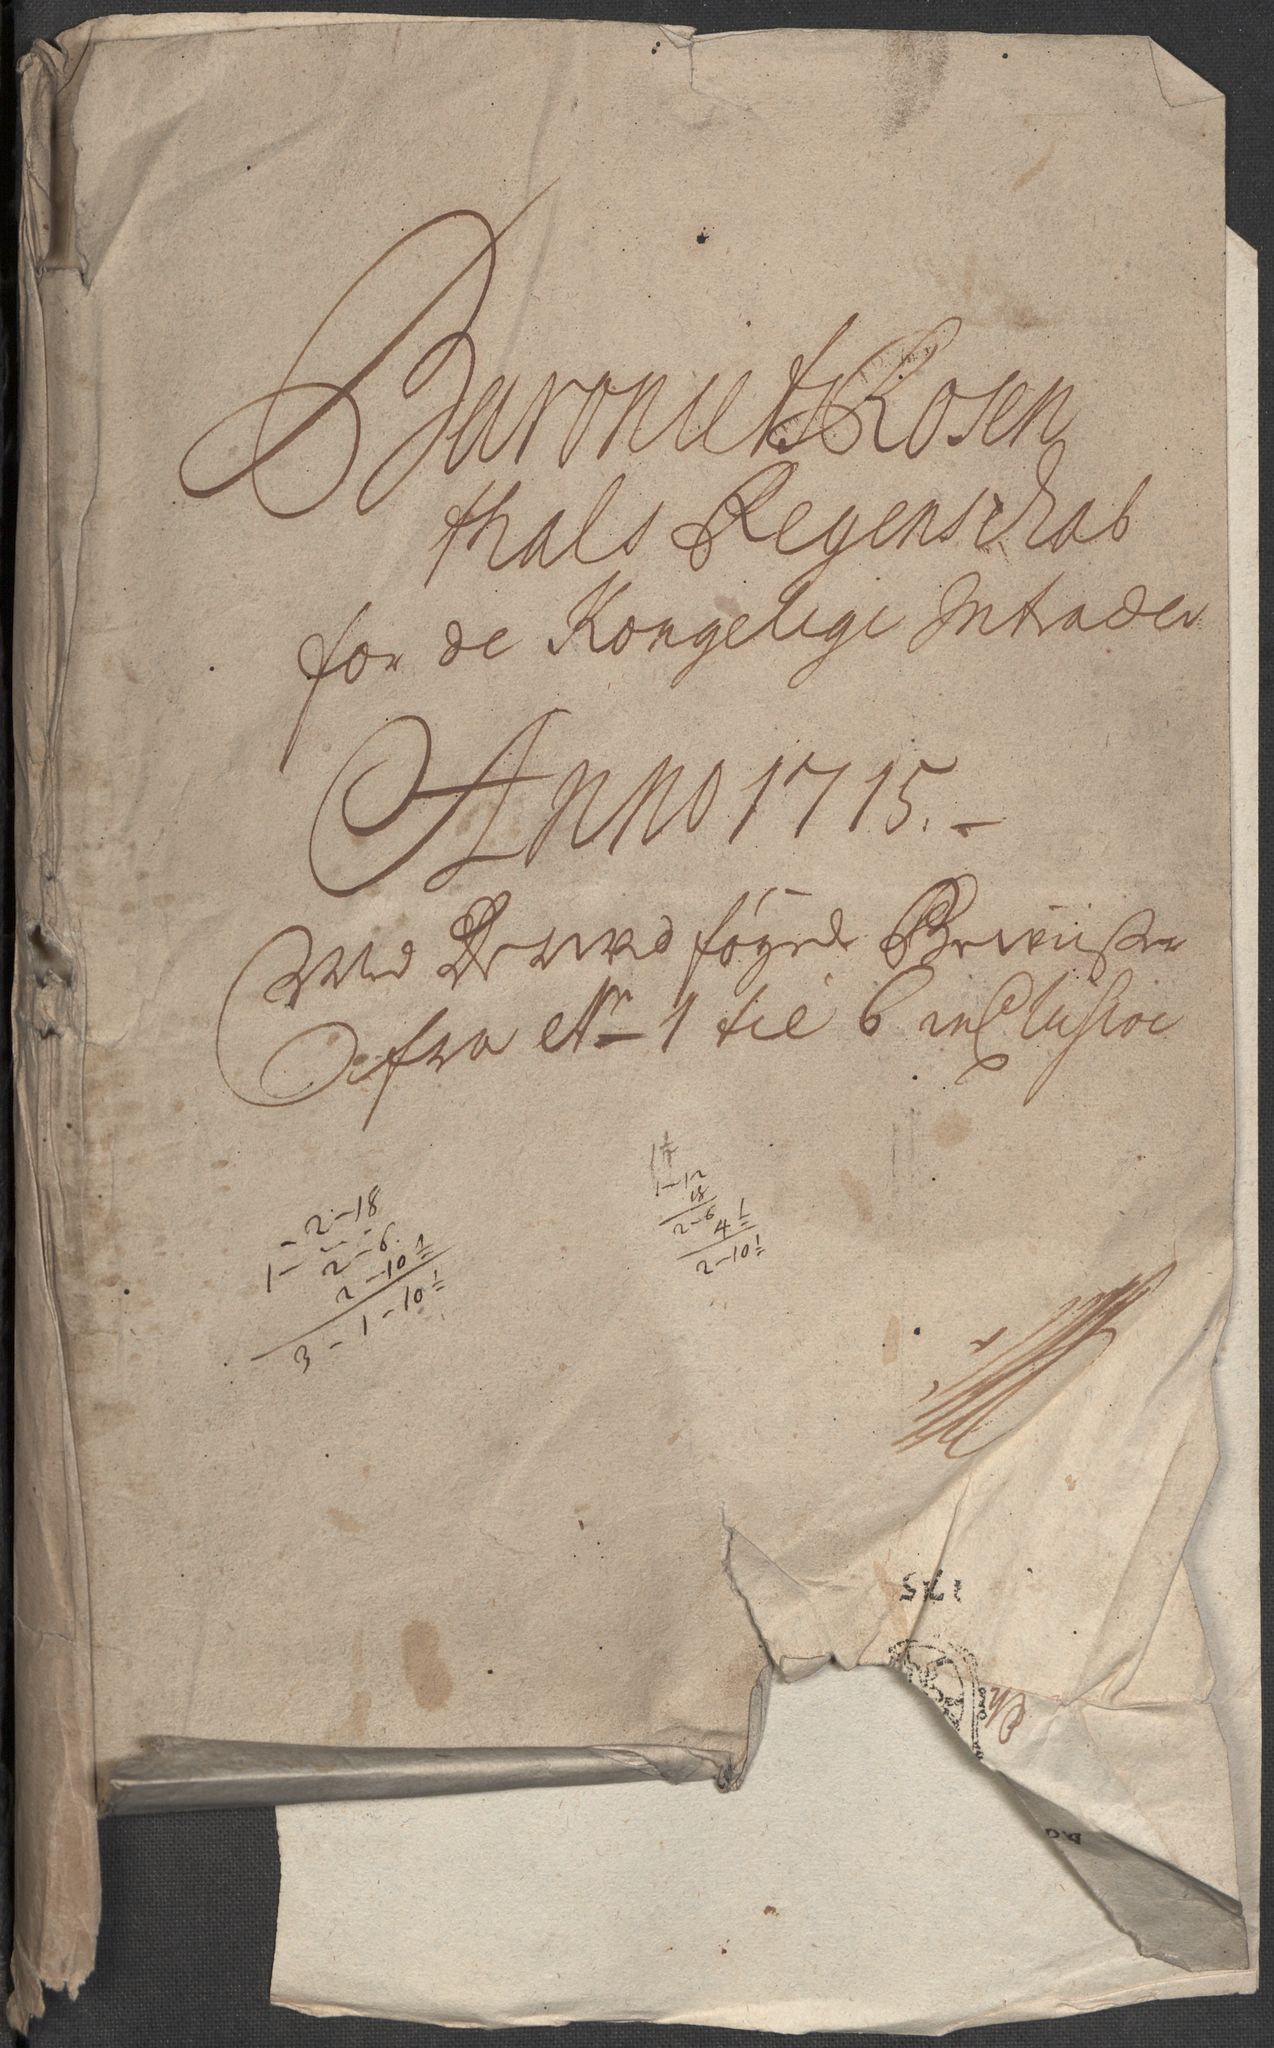 Baroniets Rosen
thals Regenschab
for de Kongelige Intrader
Anno 1715.-
Med Derved føyede Beviiser
fra No 1 til 6 inclusive
1 - 2 - 18
2 - 6
2 - 10½
3 - 1 - 10½
1 - 12
18
2 - 6
4½
2 - 10½
1715